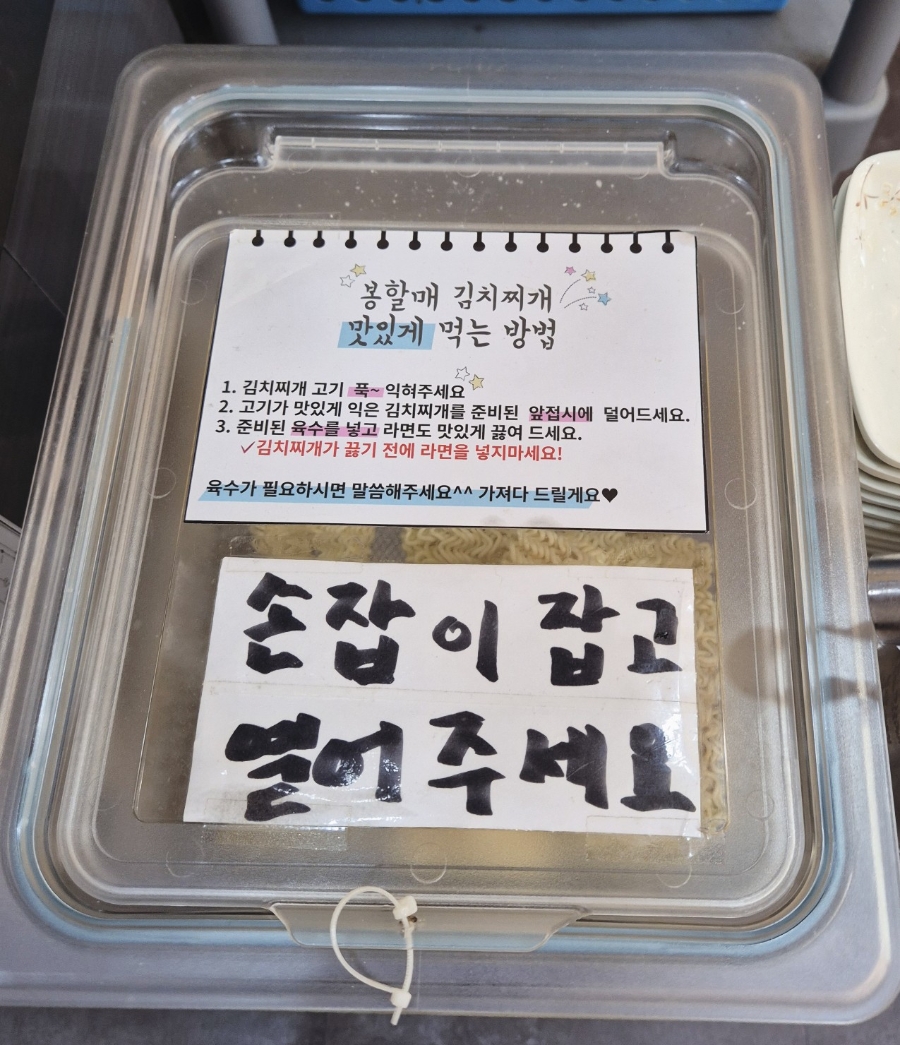 봉할매 김치찌개
맛있게 먹는 방법
1. 김치찌개 고기 푹~ 익혀주세요
2. 고기가 맛있게 익은 김치찌개를 준비된 앞접시에 덜어드세요.
3. 준비된 육수를 넣고 라면도 맛있게 끓여 드세요.
✓김치찌개가 끓기 전에 라면을 넣지마세요!
육수가 필요하시면 말씀해주세요^^ 가져다 드릴게요♥
손잡이 잡고
열어 주세요